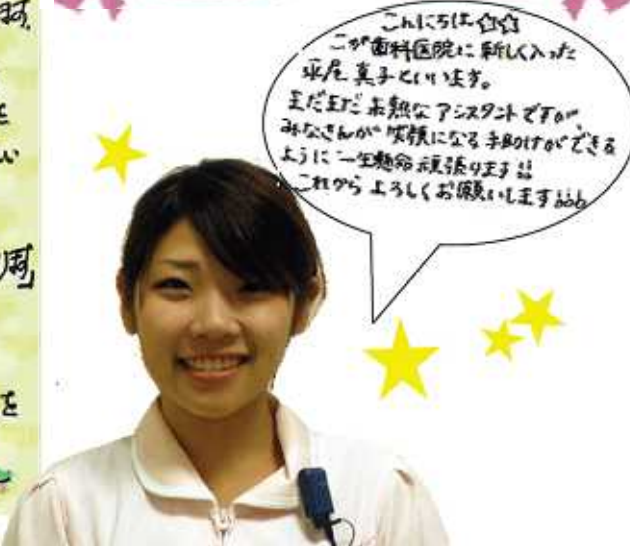 こんにちは☆☆
こが歯科医院に新しく入った
真子といいます。
まだまだ未熟なアシスタントですが
みなさんが笑顔になる手助けができる
ように一生懸命頑張ります!!
これからよろしくお願いします
を
い
周」
を